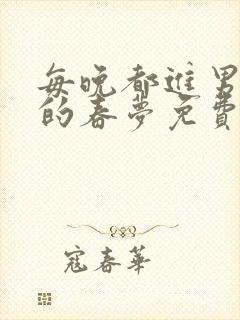 每晚都進男
的春夢免費
寇春華